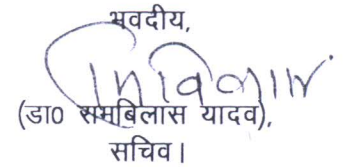 भवदीय,
(डा० रामबिलास यादव),
सचिव।